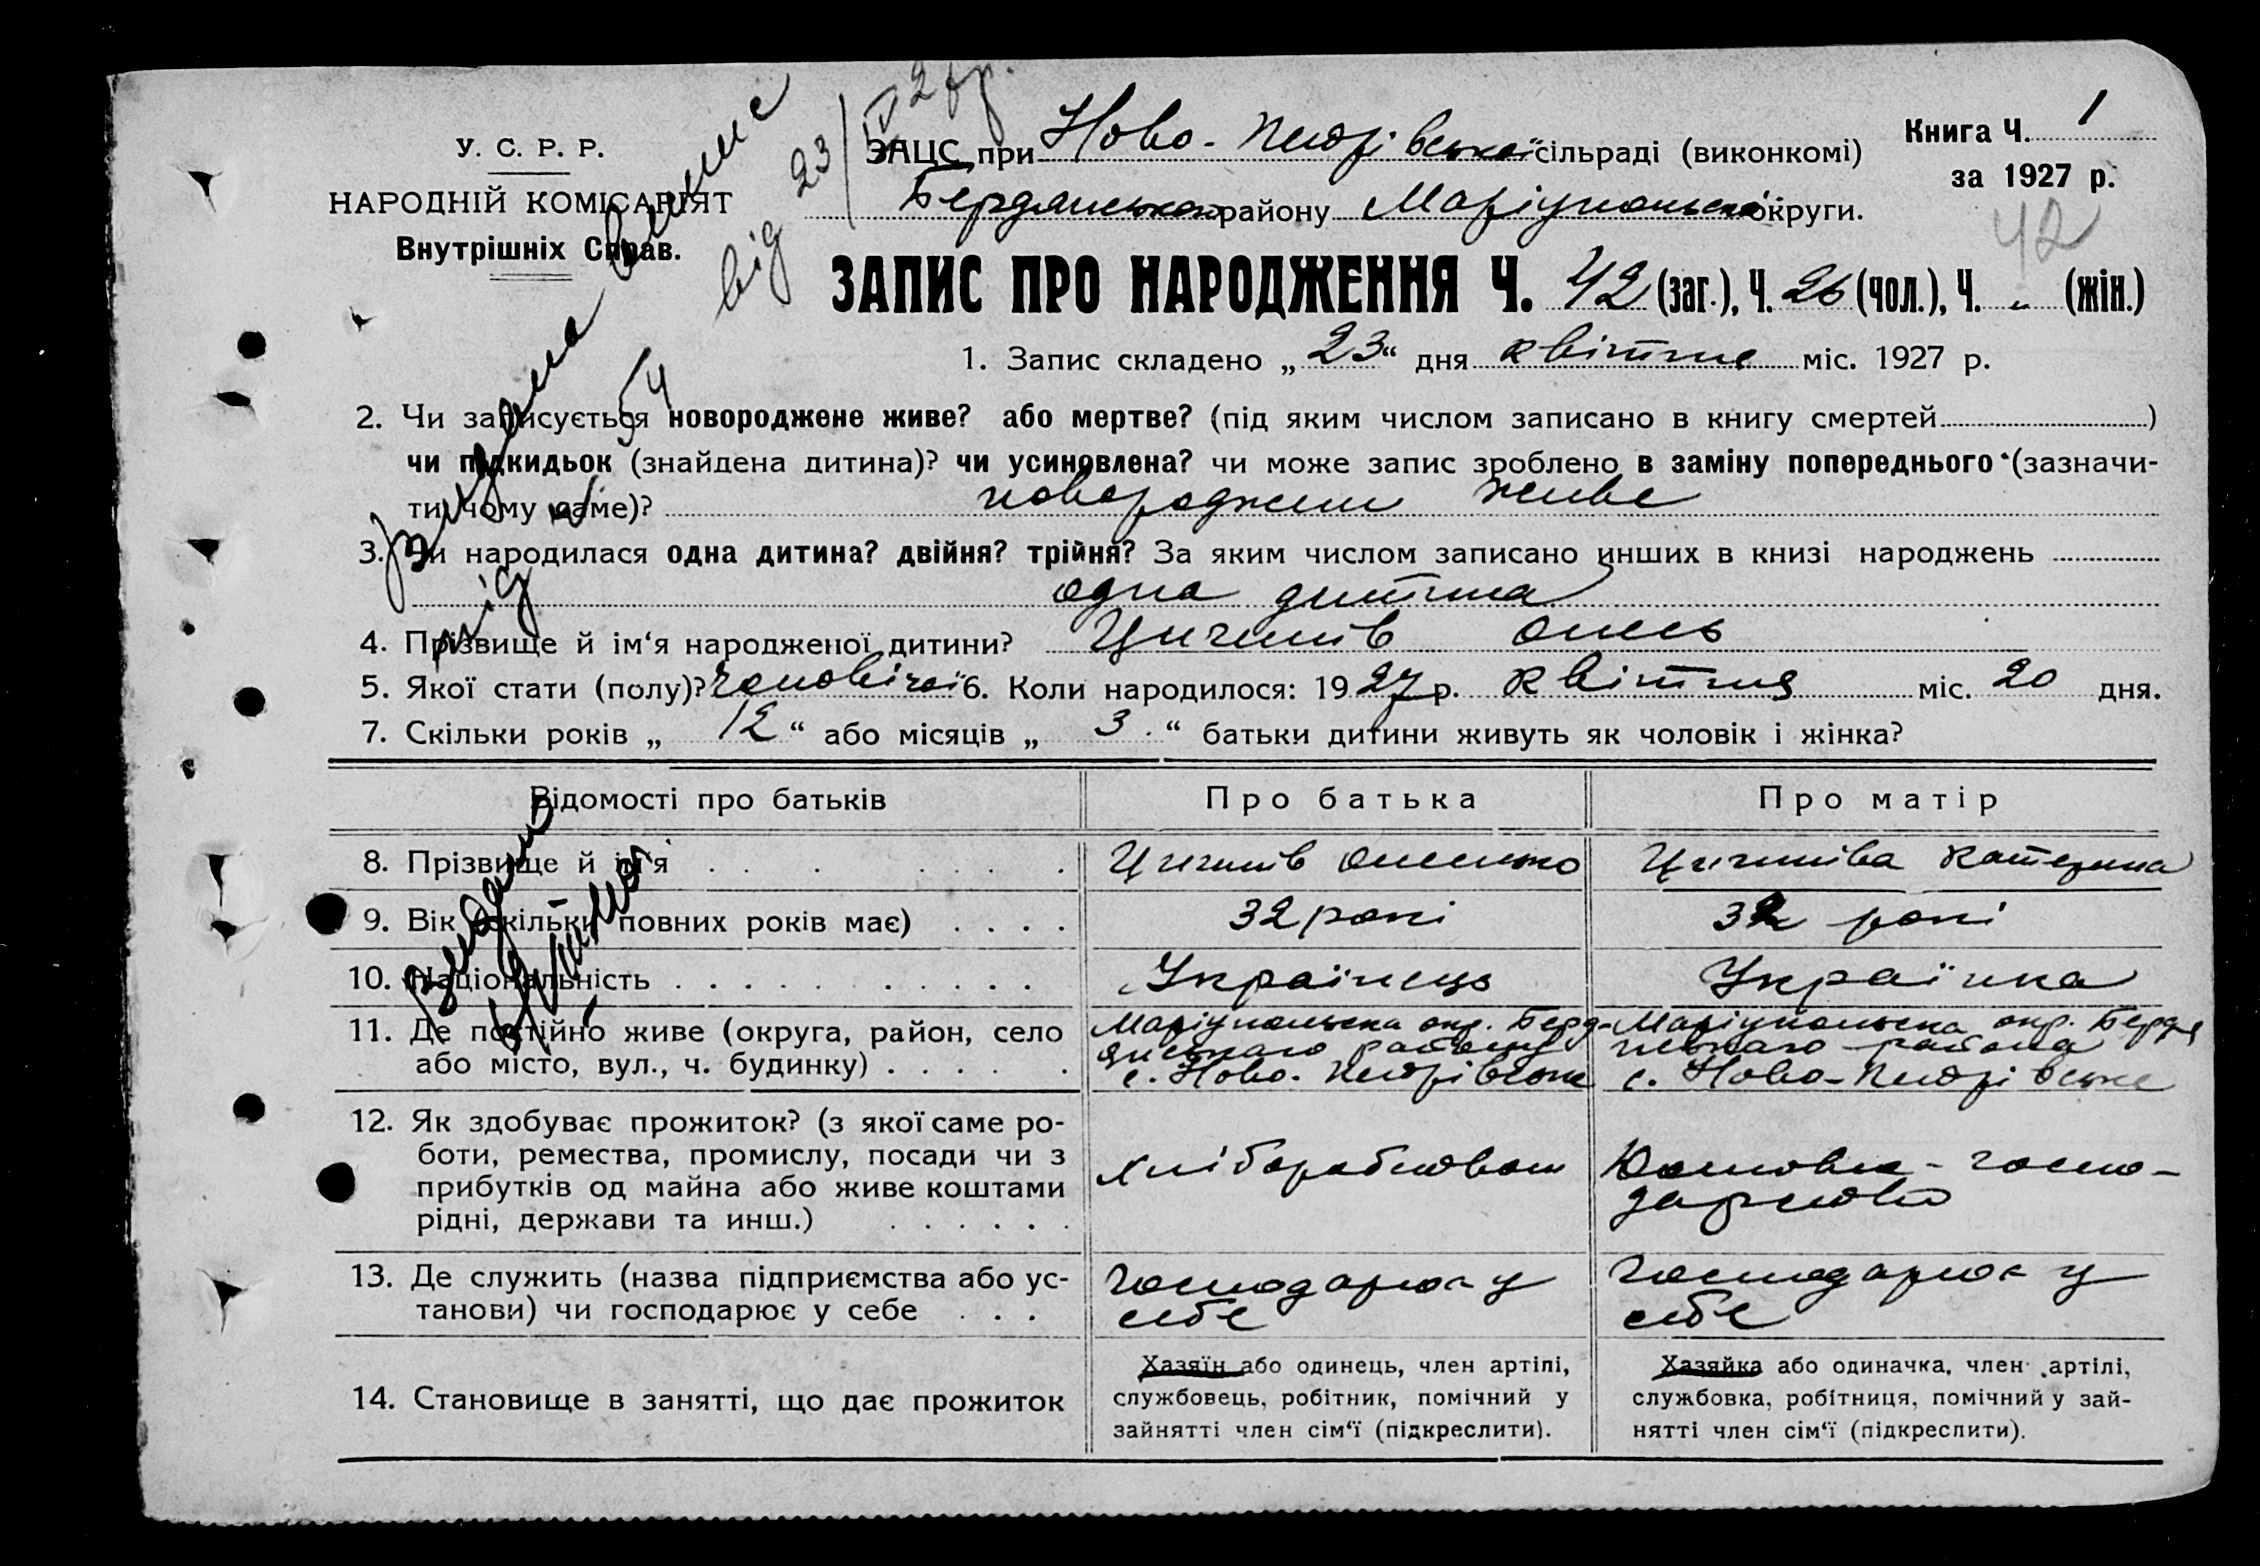 У. С. Р. Р.
НАРОДНІЙ КОМІСАРІЯТ
Внутрішніх Справ.
ЗАЦС при Ново-Петрівській сільраді (виконкомі)
Бердянського району Маріупольської округи.
Книга Ч. 1
за 1927 р.
42
ЗАПИС ПРО НАРОДЖЕННЯ Ч. 42 (заг.), Ч. 26 (чол.), Ч. „ (жін.)
від 23/IV 27р.
1. Запис складено „23“ дня квітня міс. 1927 р.
2. Чи записується новороджене живе? або мертве? (під яким числом записано в книгу смертей)
чи підкидьок (знайдена дитина)? чи усиновлена? чи може запис зроблено в заміну попереднього (зазначи-
ти чому саме)? новороджене живе
3. Чи народилася одна дитина? двійня? трійня? За яким числом записано инших в книзі народжень
одна дитина
4. Прізвище й ім‘я народженої дитини?
5. Якої стати (полу)? чоловічої 6. Коли народилося: 1927 р. квітня міс. 20 дня.
7. Скільки років „ 12 “ або місяців „ 3 “ батьки дитини живуть як чоловік і жінка?
Відомості про батьків Про батька Про матір
8. Прізвище й ім‘я Катерина
9. Вік (скільки повних років має) 32 рокі 32 рокі
10. Національність Українець Українка
11. Де постійно живе (округа, район, село Маріупольська окр. Берд- Маріупольська окр. Бердя
або місто, вул., ч. будинку) янського району нського района
с. Ново-Петрівське с. Ново-Петрівське
12. Як здобуває прожиток? (з якої саме ро-
боти, ремества, промислу, посади чи з хліборобством госпо-
прибутків од майна або живе коштами дарством
рідні, держави та инш.)
13. Де служить (назва підприємства або ус- господарює у господарює у
танови) чи господарює у себе себе себе
14. Становище в занятті, що дає прожиток
Хазяїн або одинець, член артілі,
службовець, робітник, помічний у
зайнятті член сім‘ї (підкреслити).
Хазяйка або одиначка, член артілі,
службовка, робітниця, помічний у зай-
нятті член сім‘ї (підкреслити).